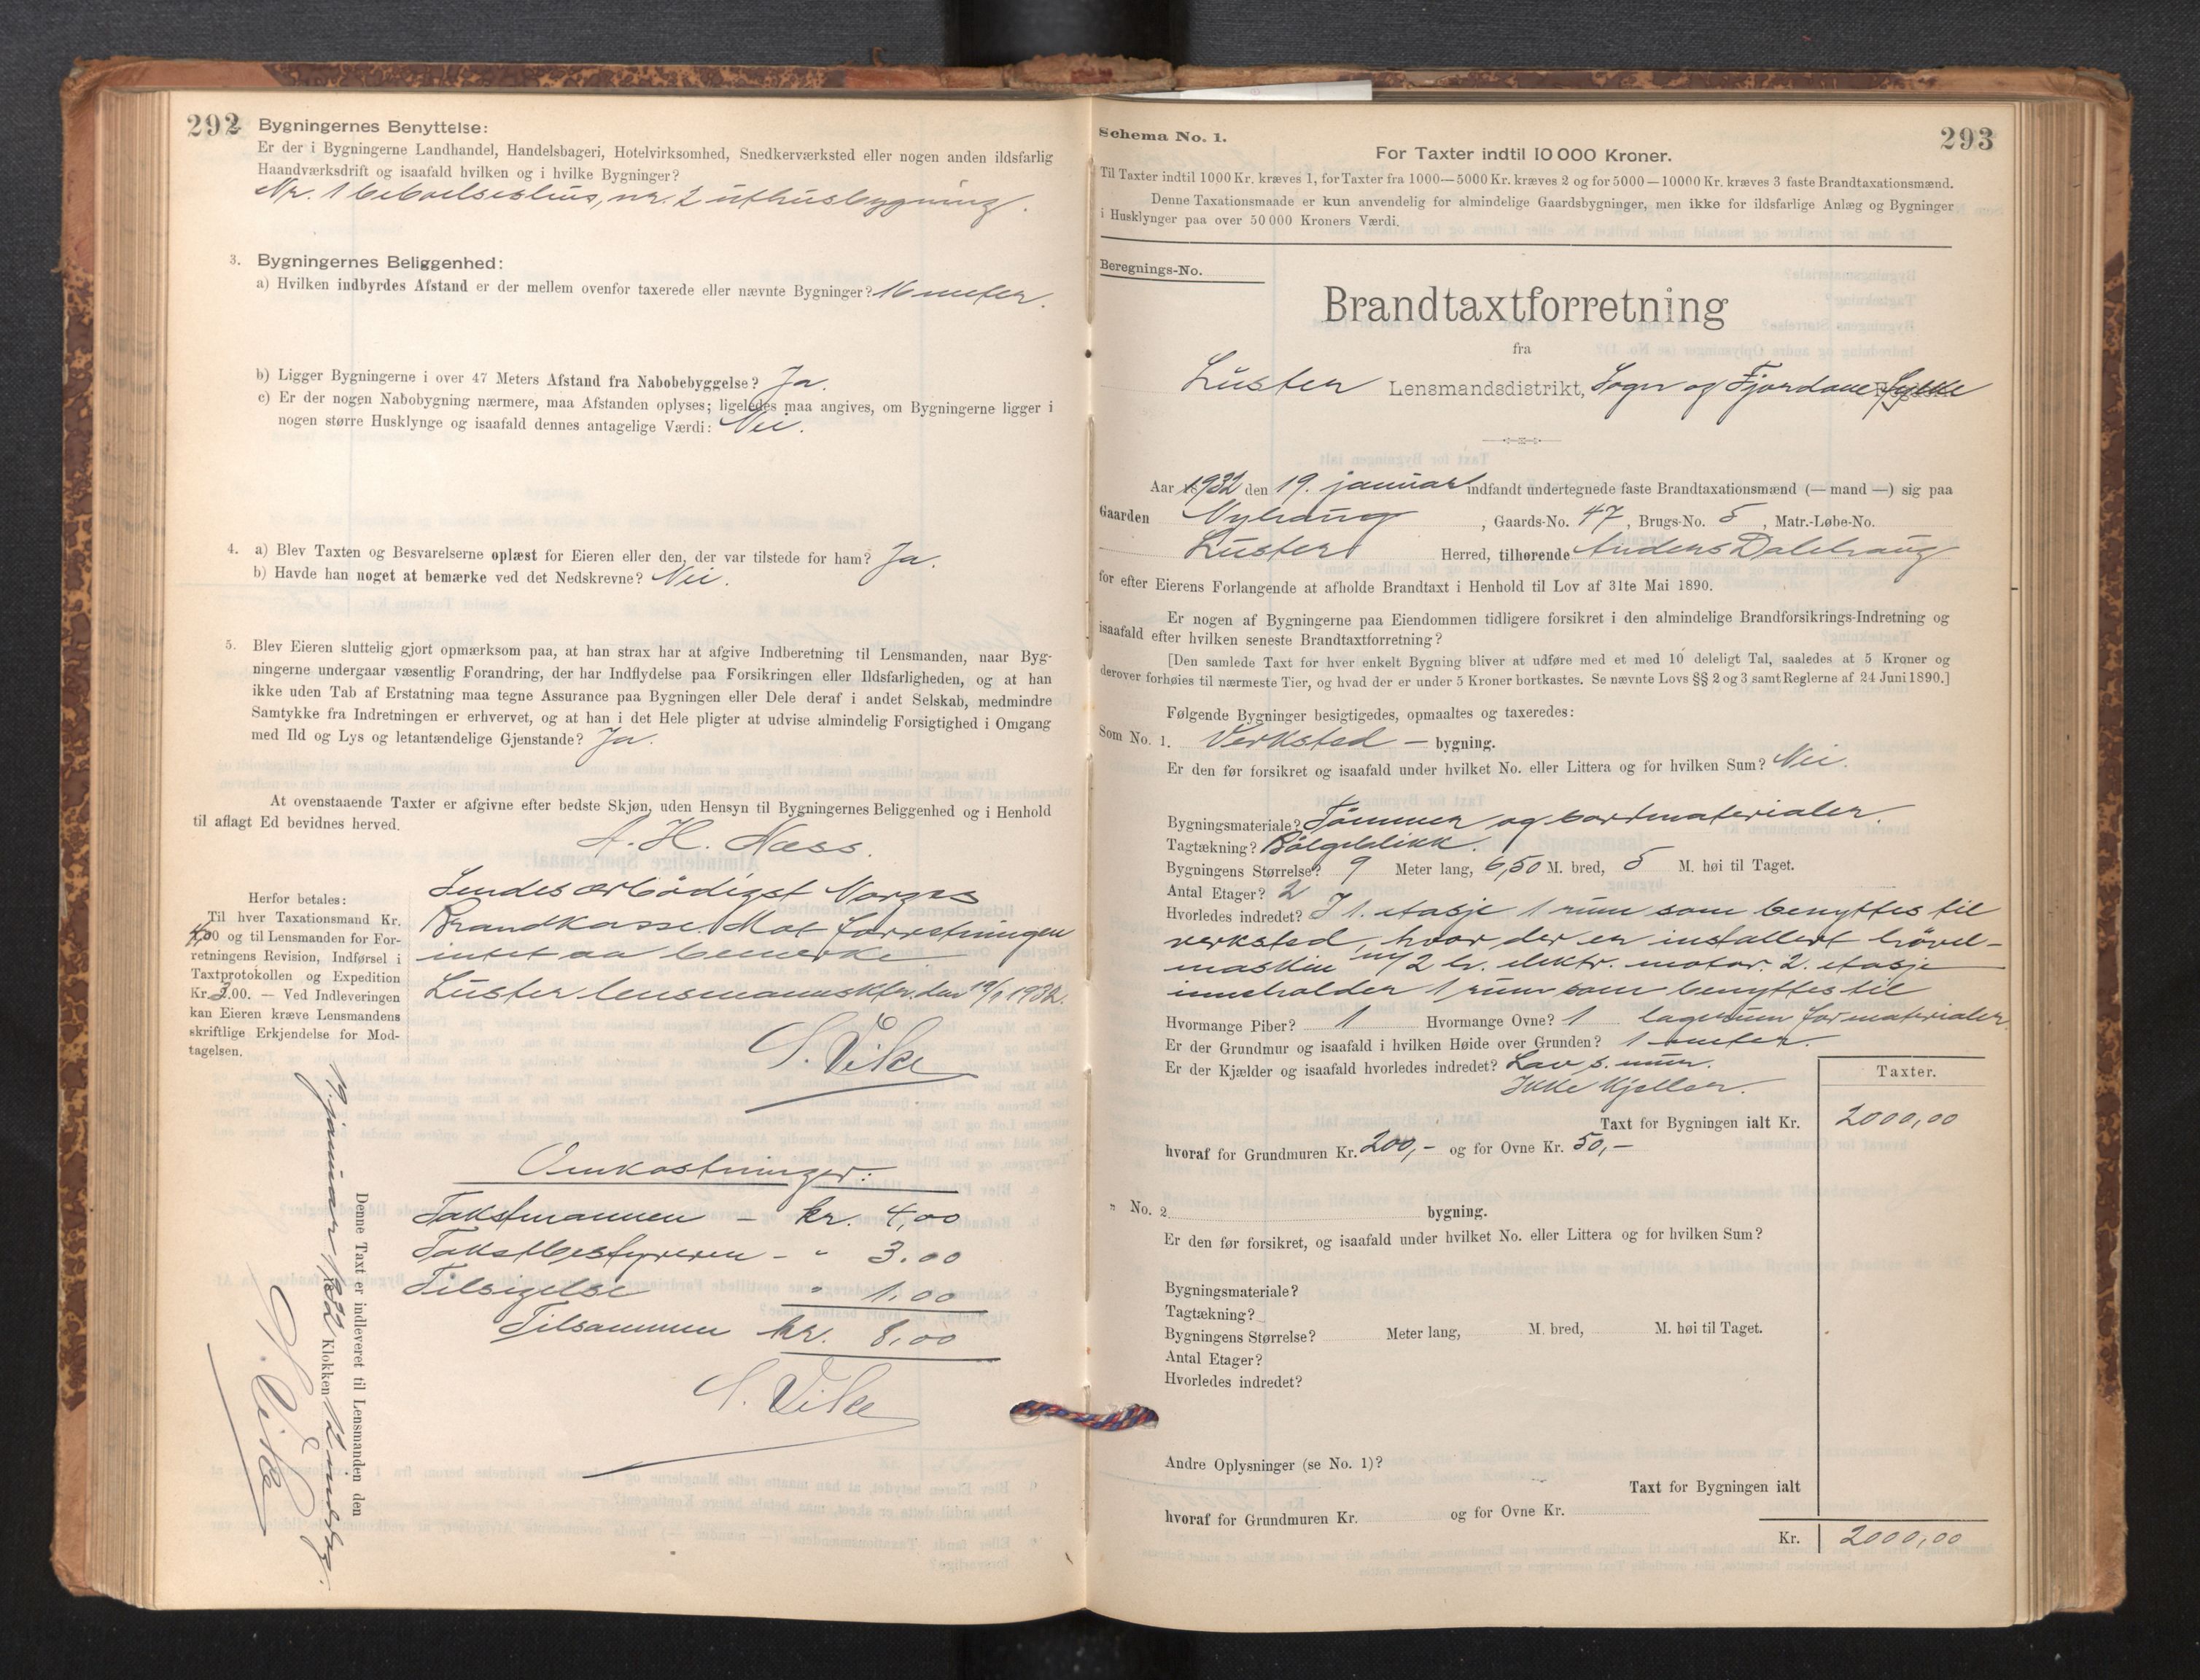 292
Bygningernes Benyttelse:
Er der i Bygningerne Landhandel, Handelsbageri, Hotelvirksomhed, Snedkerværksted eller nogen anden ildsfarlig
Haandværksdrift og isaafald hvilken og i hvilke Bygninger?
Nr. 1 beboelseshus, nr. 2 uthusbygning.
3. Bygningernes Beliggenhed:
a) Hvilken indbyrdes Afstand er der mellem ovenfor taxerede eller nævnte Bygninger? 16 meter.
b) Ligger Bygningerne i over 47 Meters Afstand fra Nabobebyggelse? Ja.
c) Er der nogen Nabobygning nærmere, maa Afstanden oplyses; ligeledes maa angives, om Bygningerne ligger i
nogen større Husklynge og isaafald dennes antagelige Værdi: Nei.
4. a) Blev Taxten og Besvarelserne oplæst for Eieren eller den, der var tilstede for ham? Ja.
b) Havde han noget at bemærke ved det Nedskrevne? Nei.
5. Blev Eieren sluttelig gjort opmærksom paa, at han strax har at afgive Indberetning til Lensmanden, naar Byg-
ningerne undergaar væsentlig Forandring, der har Indflydelse paa Forsikringen eller Ildsfarligheden, og at han
ikke uden Tab af Erstatning maa tegne Assurance paa Bygningen eller Dele deraf i andet Selskab, medmindre
Samtykke fra Indretningen er erhvervet, og at han i det Hele pligter at udvise almindelig Forsigtighed i Omgang
med Ild og Lys og letantændelige Gjenstande? Ja.
At ovenstaaende Taxter er afgivne efter bedste Skjøn, uden Hensyn til Bygningernes Beliggenhed og i Henhold
til aflagt Ed bevidnes herved.
A. H. Næss.
Herfor betales:
Til hver Taxationsmand Kr.
4,00 og til Lensmanden for For-
retningens Revision, Indførsel i
Taxtprotokollen og Expedition
Kr. 3.00. — Ved Indleveringen
kan Eieren kræve Lensmandens
skriftlige Erkjendelse for Mod-
tagelsen.
Sendes ærbödigst Norges
Brandkasse. Mot forretningen
intet aa bemerke
Luster lensmannsktr. den 19/1 1932.
S. Vike
Omkostninger:
Takstmannen — kr. 4,00
Takstbestyreren - " 3.00
Tilsigelse " 1.00
Tilsammen kr. 8,00
S. Vike
Denne Taxt er indleveret til Lensmanden den
19. januar 1932 Klokken 12 middag.
S. Vike
293
Schema No. 1.
For Taxter indtil 10 000 Kroner.
Til Taxter indtil 1000 Kr. kræves 1, for Taxter fra 1000—5000 Kr. kræves 2 og for 5000—10000 Kr. kræves 3 faste Brandtaxationsmænd.
Denne Taxationsmaade er kun anvendelig for almindelige Gaardsbygninger, men ikke for ildsfarlige Anlæg og Bygninger
i Husklynger paa over 50 000 Kroners Værdi.
Beregnings-No.
Brandtaxtforretning
fra
Luster Lensmandsdistrikt, Sogn og Fjordane Fylke
Aar 1932 den 19. januar indfandt undertegnede faste Brandtaxationsmænd (— mand —) sig paa
Gaarden Nyhaug, Gaards-No. 47, Brugs-No. 5, Matr.-Løbe-No.
Luster Herred, tilhørende Anders Dalehaug
for efter Eierens Forlangende at afholde Brandtaxt i Henhold til Lov af 31te Mai 1890.
Er nogen af Bygningerne paa Eiendommen tidligere forsikret i den almindelige Brandforsikrings-Indretning og
isaafald efter hvilken seneste Brandtaxtforretning?
[Den samlede Taxt for hver enkelt Bygning bliver at udføre med et med 10 deleligt Tal, saaledes at 5 Kroner og
derover forhøies til nærmeste Tier, og hvad der er under 5 Kroner bortkastes. Se nævnte Lovs §§ 2 og 3 samt Reglerne af 24 Juni 1890.]
Følgende Bygninger besigtigedes, opmaaltes og taxeredes:
Som No. 1. Verksted — bygning.
Er den før forsikret og isaafald under hvilket No. eller Littera og for hvilken Sum? Nei.
Bygningsmateriale? Tömmer og bordmaterialer.
Tagtækning? Bölgeblikk.
Bygningens Størrelse? 9 Meter lang, 6,50 M. bred, 5 M. høi til Taget.
Antal Etager? 2
Hvorledes indredet? I 1. etasje 1 rum som benyttes til
verksted, hvor der er installert hövel-
maskin m/ 2 hk. elektr. motor. 2. etasje
inneholder 1 rum som benyttes til
Hvormange Piber? 1 Hvormange Ovne? 1 lagerrum for materialer
Er der Grundmur og isaafald i hvilken Høide over Grunden? 1 meter.
Er der Kjælder og isaafald hvorledes indredet? Lav s. mur.
Ikke kjeller.
Taxter.
Taxt for Bygningen ialt Kr. 2000,00
hvoraf for Grundmuren Kr. 200,- og for Ovne Kr. 50,—
" No. 2 bygning.
Er den før forsikret, og isaafald under hvilket No. eller Littera og for hvilken Sum?
Bygningsmateriale?
Tagtækning?
Bygningens Størrelse? Meter lang, M. bred, M. høi til Taget.
Antal Etager?
Hvorledes indredet?
Andre Oplysninger (se No. 1)?
Taxt for Bygningen ialt
hvoraf for Grundmuren Kr. og for Ovne Kr.
Kr. 2000,00